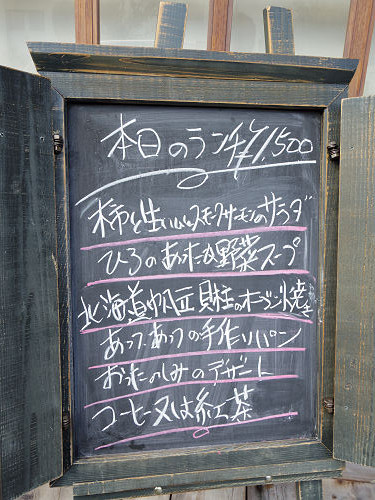 本日のランチ ¥1,500
柿と生ハムとスモークサーモンのサラダ
ひろのあったか野菜スープ
北海道帆立貝柱のオーブン焼き
あっつあつの手作りパン
おたのしみのデザート
コーヒー又は紅茶